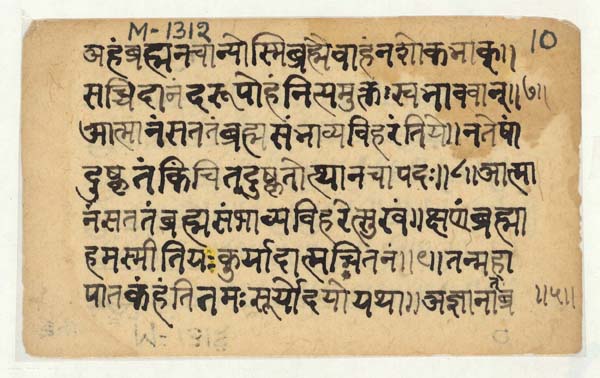 M-1312
10
अहंब्रह्मनचान्योस्मिब्रह्मैवाहंनशोकभाक्॥
सच्चिदानंदरूपोहंनित्यमुक्तःस्वभाववान्॥७॥
आत्मानंसततंब्रह्मसंभाव्यविहरंतिये॥नतेषां
दुष्कृतंकिंचित्दुष्कृतोत्थानचापदः॥८॥आत्मा
नंसततंब्रह्मसंभाव्यविहरेत्सुखं॥क्षणंब्रह्मा
हमस्मीतियःकुर्यादात्मचिंतनं॥९॥तन्महा
पातकंहंतितमःसूर्योदयोयथा॥अज्ञानाद्ब्र
॥५॥